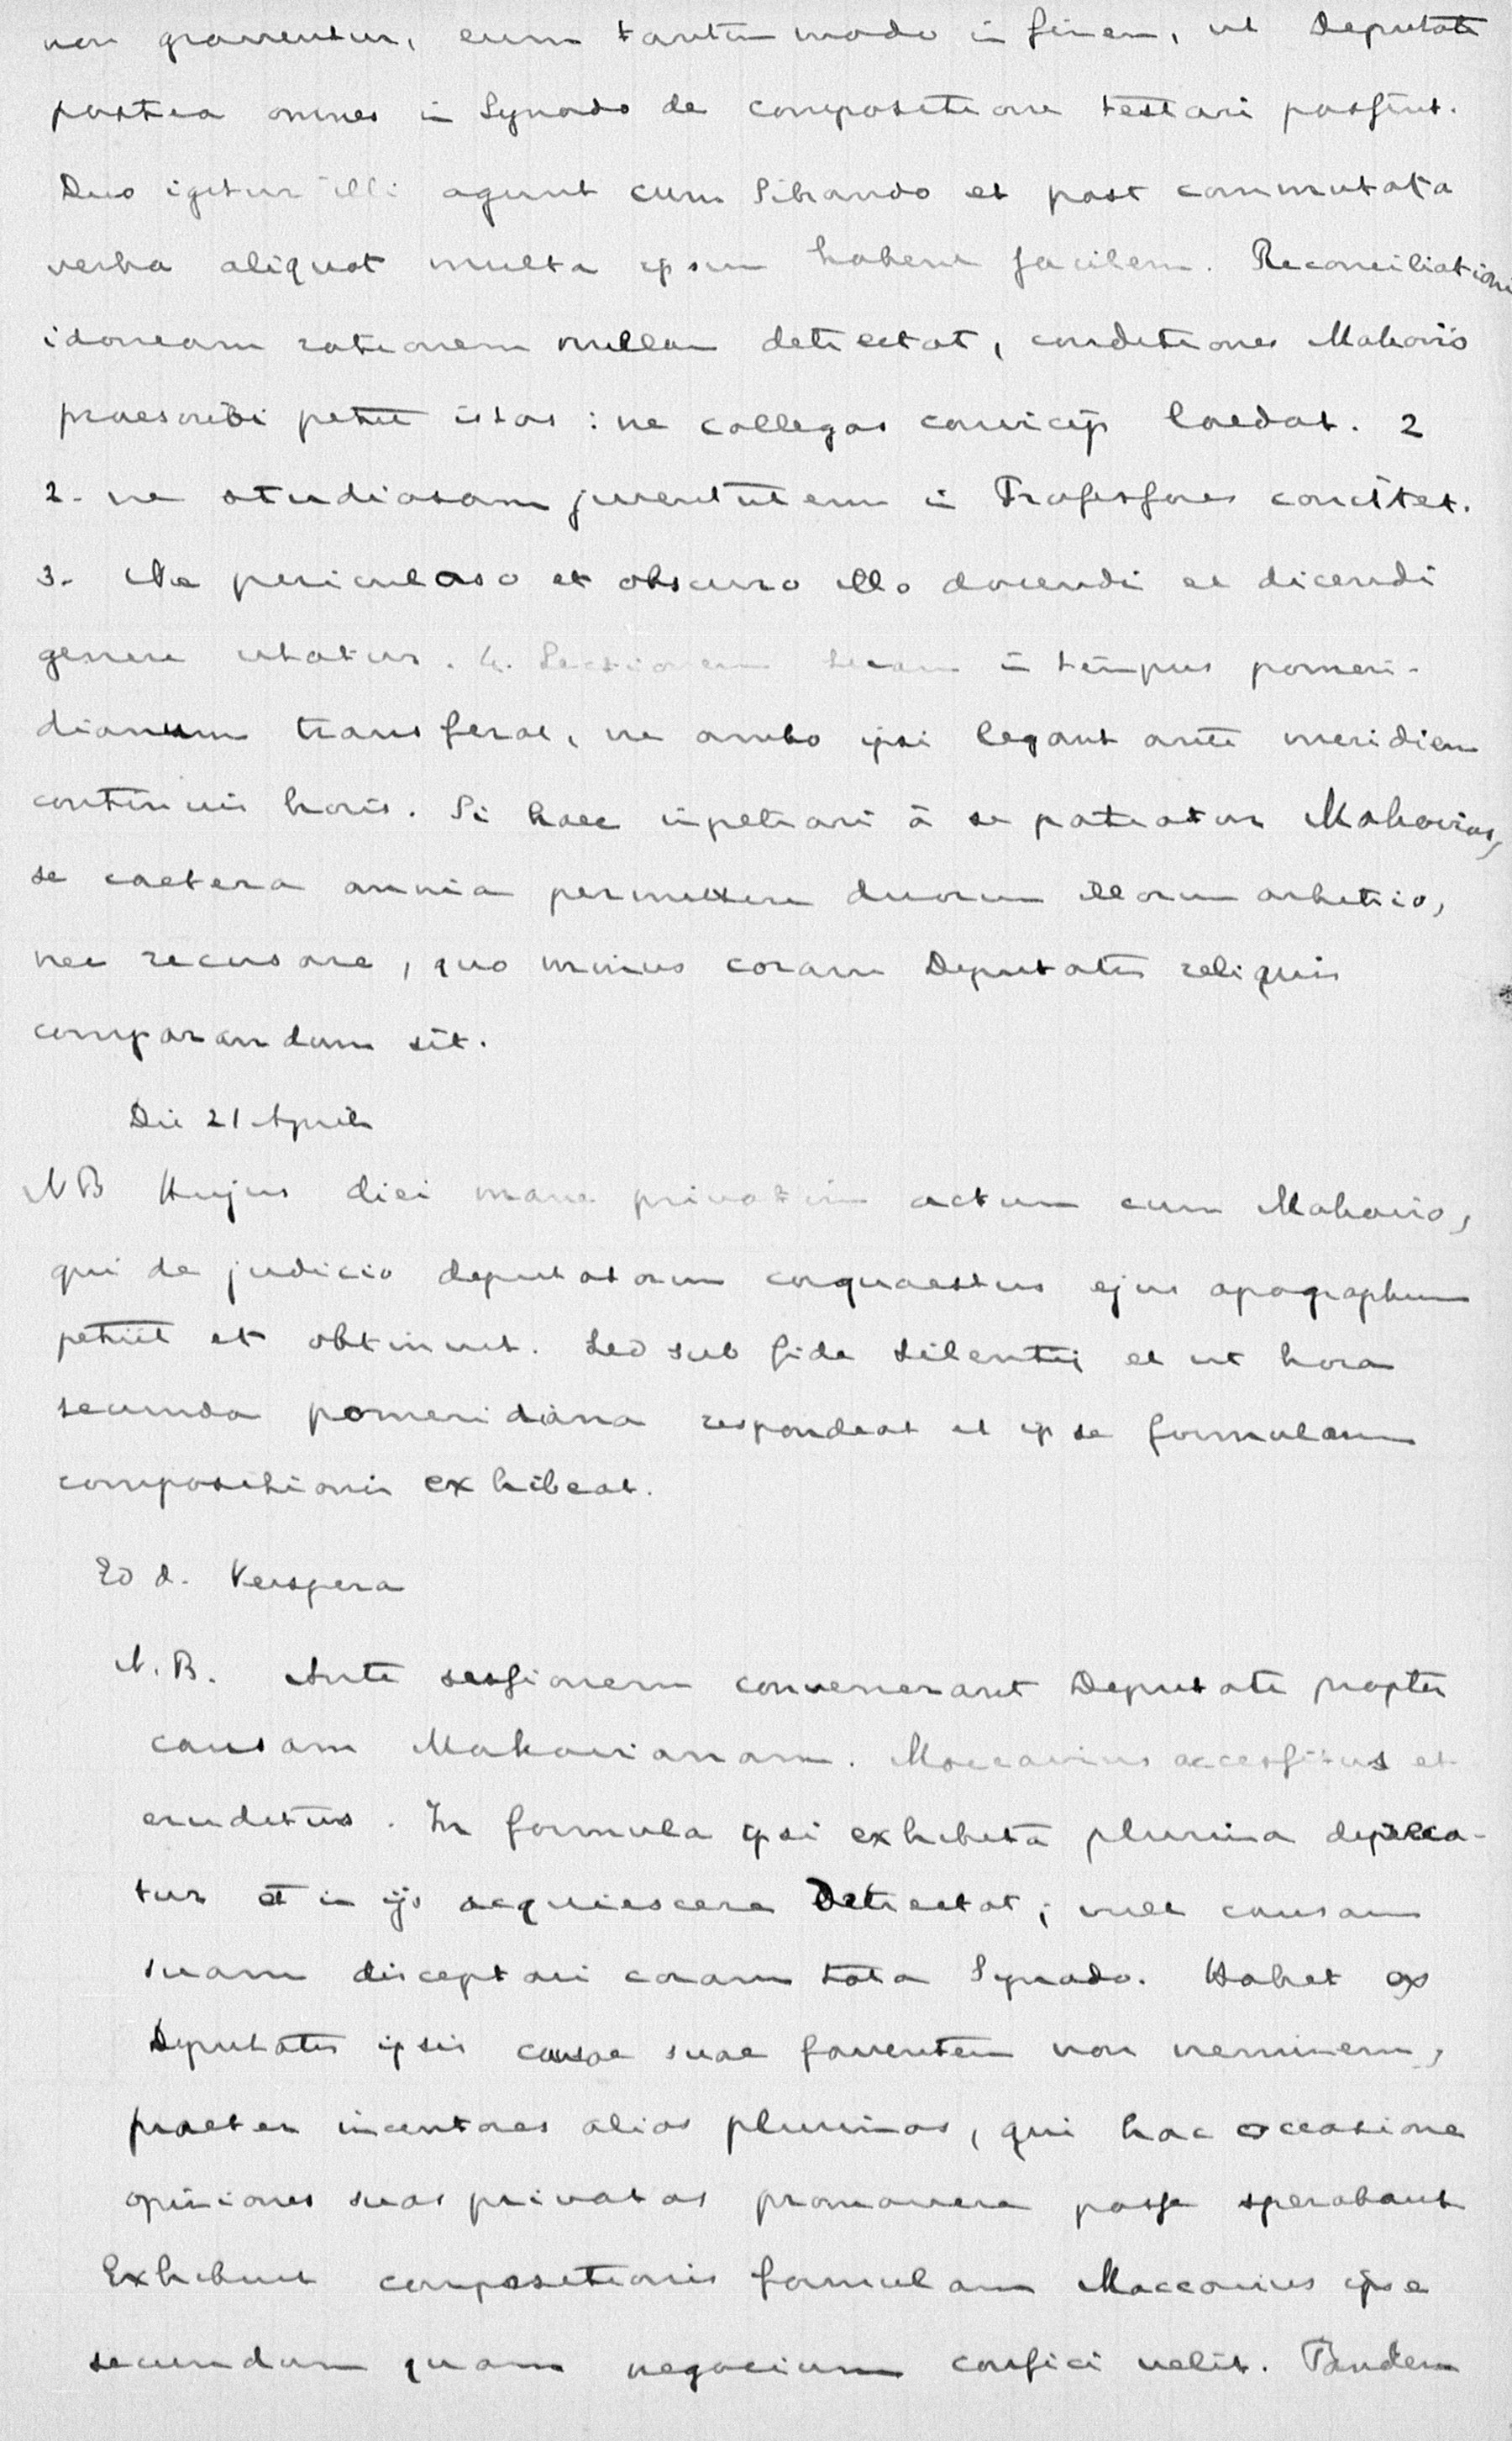 non graventur, eum tantum modo in finem, ut Deputati
postea omnes in Synodo de compositione testari possint.
Duo igitur illi agunt cum Sibrando et post commutata
verba aliquot multa ipsum habent facilem. Reconciliationis
idoneam rationem nullam detrectat, conditiones Makovio
praescribi petiit istas: ne collegas convicijs laedat. 2
2. ne studiosam juventutem in Professores concitet.
3. Ne periculoso et obscuro illo docendi ac dicendi
genere utatur. 4. Lectionem suam in tempus pomeri-
dianum transferat, ne ambo ipsi legant ante meridiem
continuis horis. Si haec impetrari à se patiatur Makovius,
se caetera omnia permittere duorum illorum arbitrio,
nec recusare, quo minus coram Deputatis reliquis
comparandum sit.
Die 21 Aprilis
NB Hujus diei mane privatim actum cum Makovio,
qui de judicio deputatorum conquaestus ejus apographum
petiit et obtinuit. Sed sub fide silentij et ut hora
secunda pomeridiana respondeat et ipse formulam
compositionis exhibeat.
Eod. Vespera
N.B. Ante sessionem convenerant Deputati propter
causam Makovianam. Maccovius accersitus et
auditus. In formula ipsi exhibita plurima depreca-
tur et in ijs acquiescere detrectat; vult causam
suam disceptari coram tota Synodo. Habet ex
Deputatis ipsis causae suae faventem non neminem,
praeter incentores alios plurimos, qui hac occasione
opiniones suas privatas promovere posse sperabant
Exhibuit compositionis formulam Maccovius ipse
secundum quam negocium confici velit. Tandem